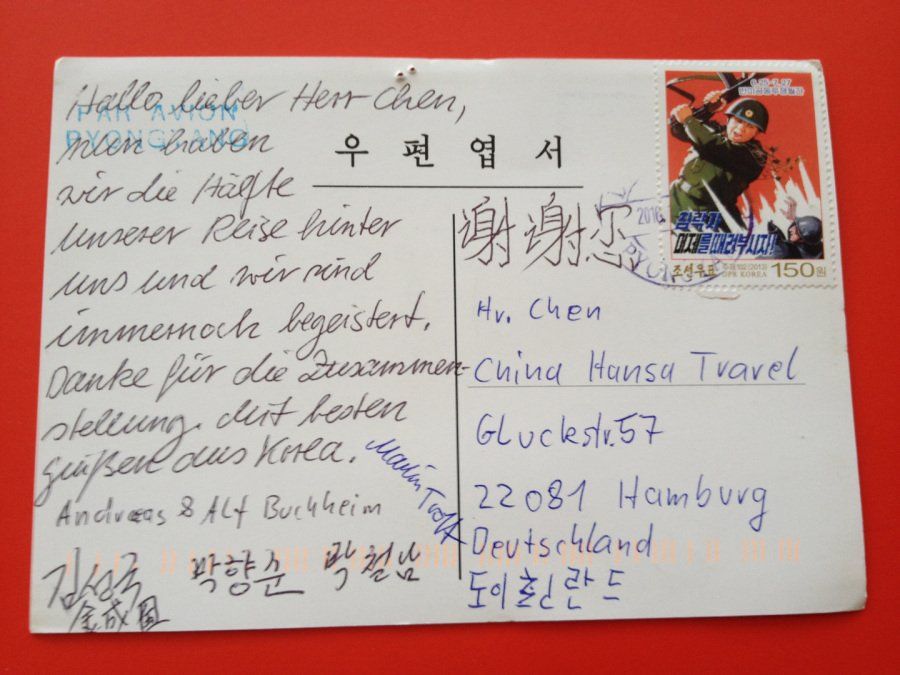 Hallo, lieber Herr Chen,
PAR AVION
PYONGYANG
nun haben
wir die Hälfte
unserer Reise hinter
uns und wir sind
immernoch begeistert.
Danke für die Zusammen-
stellung. Mit besten
grüßen aus Korea.
Andreas & Alf Buchheim
Martin
김성국 박향순 박철남
金成国
우편엽서
6.25-7.27
반미공동투쟁월간
침략자
미제를 때려부시자!
조선우표
주체102(2013)
DPR KOREA
150원
2016
谢谢您
Hr. Chen
China Hansa Travel
Gluckstr. 57
22081 Hamburg
Deutschland
도이췰란드